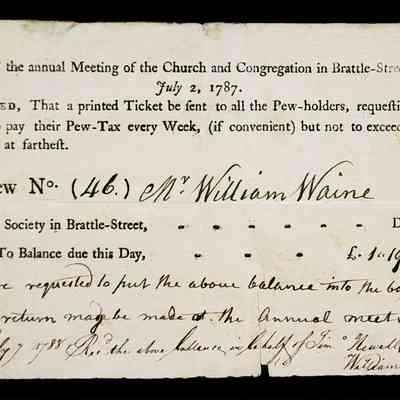 the annual Meeting of the Church and Congregation in Brattle-Stre
July 2, 1787.
ED, That a printed Ticket be ſent to all the Pew-holders, requeſti
pay their Pew-Tax every Week, (if convenient) but not to exceed
at fartheſt.
ew No. (46.) Mr. William Waine
Society in Brattle-Street, - - - - - - D
To Balance due this Day, - - - - £. 1..19
re requested to put the above balance into the bo
return may be made at the Annual meet
ly 7 1788 Recd. the above ballance, in behalf of Timo. Newell
William